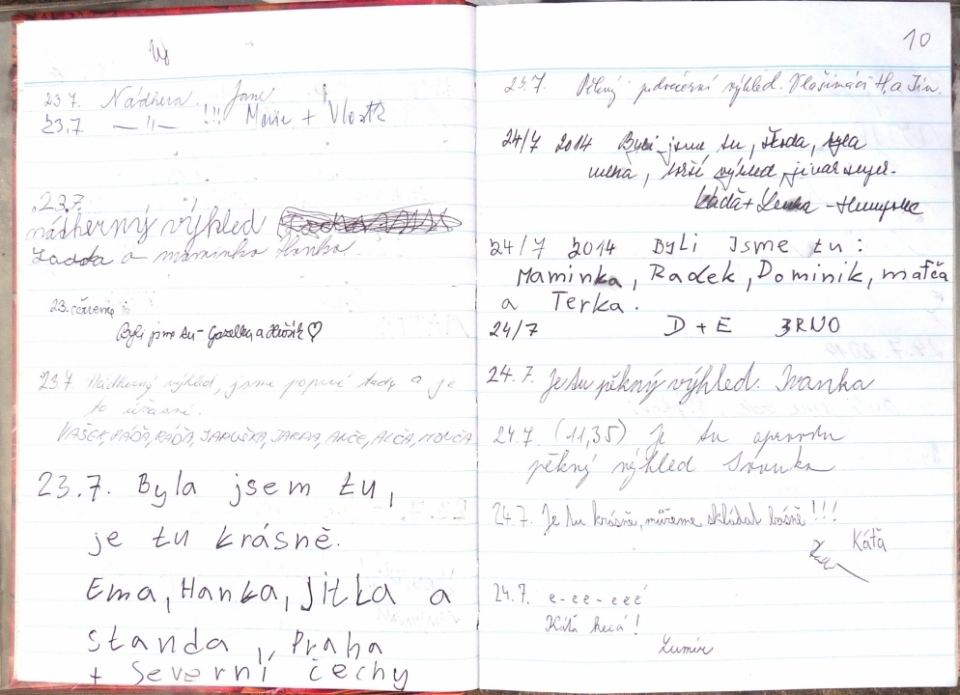 23.7. Nádhera. Jane
23.7. —"— !!! Marie + Vlasta
23.7.
nádherný výhled
a maminka Hanka.
23. července
Byli jsme tu - Gazelka a ♡
23.7 Nádherný výhled, jsme poprvé tady a je
to úžasné.
VAŠEK, PÁŤA, RÁĎA, JARUŠKA, JARDA, ALČA,
23.7. Byla jsem tu,
je tu krásně.
Ema, Hanka, Jitka a
Standa, Praha
+ Severní čechy
10
23.7. Pěkný podvečerní výhled. Vlašimáci H. a Jin.
24/7 2014 Byli jsme tu, škoda, byla
mlha, výhled,
+ Lenka -
24/7 2014 Byli Jsme tu :
Maminka, Radek, Dominik, maťča
a Terka.
24/7 D + E BRNO
24.7. Je tu pěkný výhled. Ivanka
24.7 (11,35) Je tu opravdu
pěkný výhled
24.7. Je tu krásně, můžeme skládat básně !!!
Káťa
24.7. e-ee-eeé
Káťa kecá!
Lumír